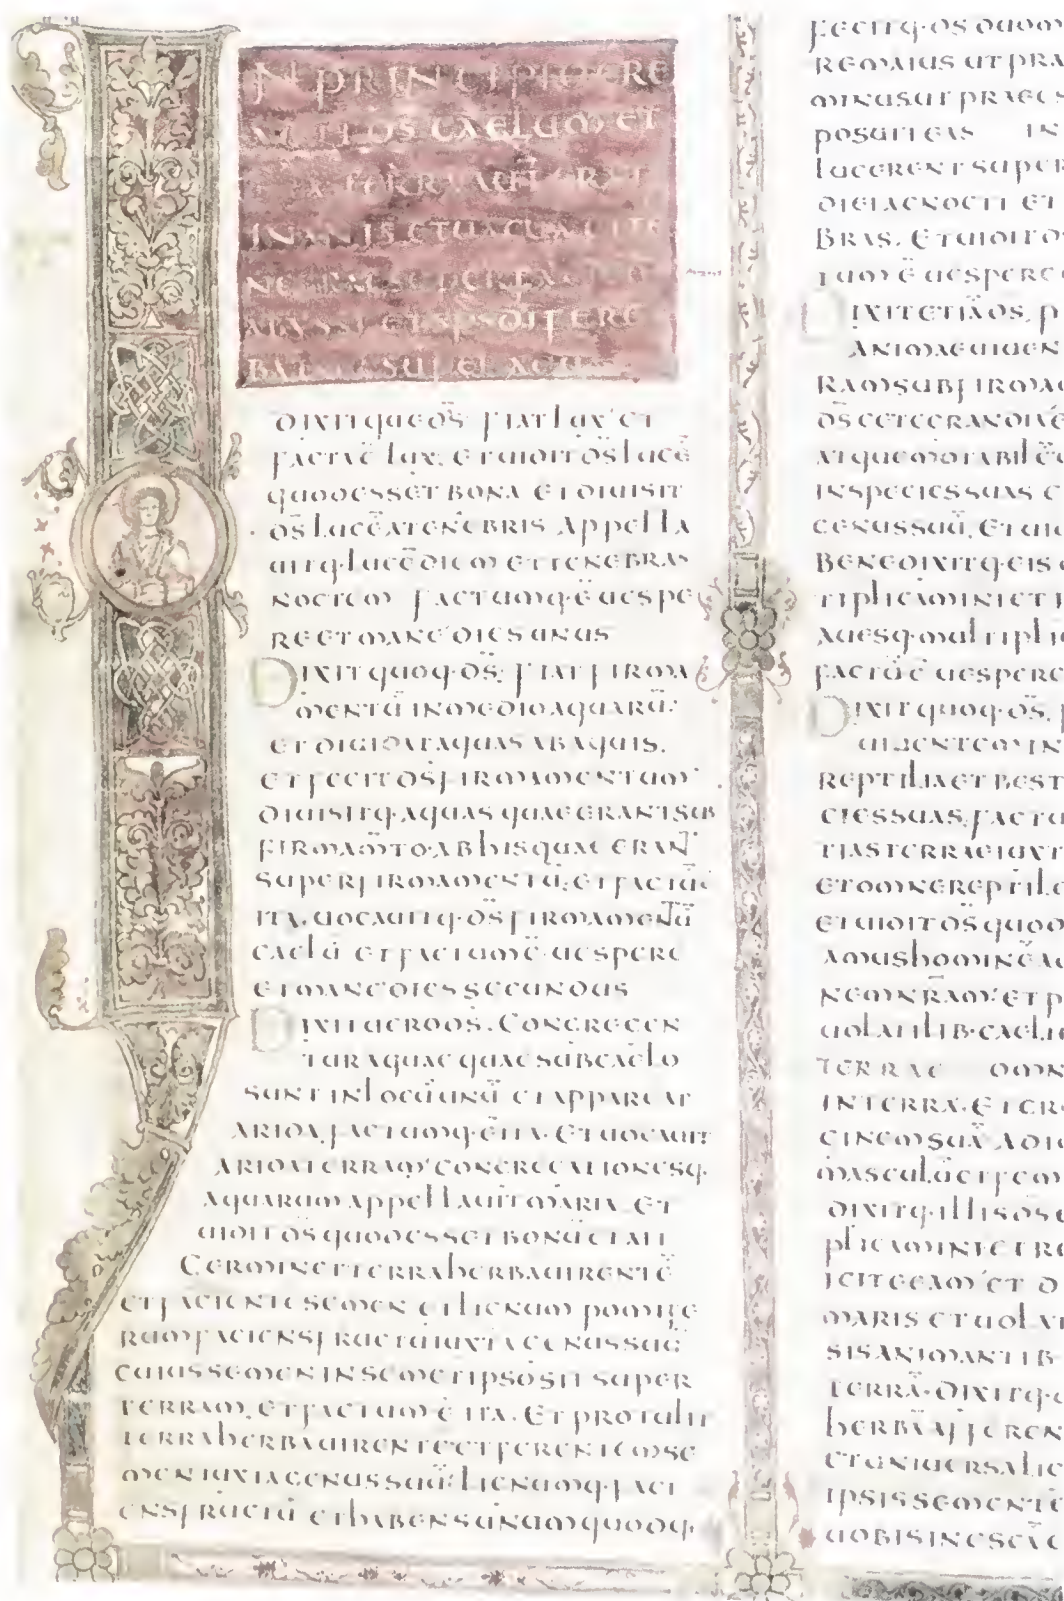 N PRINCIPIO CRE
AVIT DS CAELUM ET
TERRAM TERRA AUT ERAT
INANIS ET UACUA ET TE
NEBRAE SUPER FACIEM
ABYSSI ET SPS DI FERE
BATUR SUPER AQUAS
DIXITQUE DS FIAT LUX ET
FACTA Ē LUX. ET UIDIT DS LUCĒ
QUOD ESSET BONA ET DIUISIT
DS LUCĒ A TENEBRIS APPELLA
UITQ· LUCĒ DIEM ET TENEBRAS
NOCTEM FACTUMQ· Ē UESPE
RE ET MANE DIES UNUS
DIXIT QUOQ· DS. FIAT FIRMA
MENTŪ IN MEDIO AQUARŪ.
ET DIUIDAT AQUAS AB AQUIS.
ET FECIT DS FIRMAMENTUM
DIUISITQ· AQUAS QUAE ERANT SUB
FIRMAMTO· AB HIS QUAE ERANT
SUPER FIRMAMENTŪ. ET FACTŪ Ē
ITA. UOCAUITQ· DS FIRMAMENTŪ
CAELŪ ET FACTUM Ē UESPERE
ET MANE DIES SECUNDUS
DIXIT UERO DS. CONGREGEN
TUR AQUAE QUAE SUB CAELO
SUNT IN LOCŪ UNŪ ET APPAREAT
ARIDA. FACTUMQ· Ē ITA. ET UOCAUIT
ARIDA TERRAM CONGREGATIONESQ·
AQUARUM APPELLAUIT MARIA. ET
UIDIT DS QUOD ESSET BONŪ ET AIT
GERMINET TERRA HERBA UIRENTĒ
ET FACIENTE SEMEN ET LIGNUM POMIFE
RUM FACIENS FRUCTŪ IUXTA GENUS SUŪ
CUIUS SEMEN IN SEMETIPSO SIT SUPER
TERRAM. ET FACTUM Ē ITA. ET PROTULIT
TERRA HERBA UIRENTE ET FERENTEM SE
MEN IUXTA GENUS SUŪ. LIGNUMQ· FACI
ENS FRUCTŪ ET HABENS UNUMQUODQ·
FECITQ· DS DUO M
RE MAIUS UT PRA
MINUS UT PRAEES
POSUIT EAS IN
LUCERENT SUPER
DIEI AC NOCTI ET
BRAS. ET UIDIT DS
TUM Ē UESPERE
DIXIT ETIA DS. P
ANIMAE UIUEN
RAM SUB FIRMA
DS CETE GRANDI
ATQUE MOTABILĒ
IN SPECIES SUAS E
GENUS SUŪ. ET UID
BENEDIXITQ· EIS
TIPLICAMINI ET
AUESQ· MULTIPLI
FACTŪ Ē UESPERE
DIXIT QUOQ· DS. P
UIUENTEM IN
REPTILIA ET BEST
CIES SUAS. FACTU
TIAS TERRAE IUXT
ET OMNE REPTILE
ET UIDIT DS QUOD
AMUS HOMINĒ A
NEM NRAM. ET P
UOLATILIB· CAELI
TERRAE OMN
IN TERRA. ET CR
GINEM SUĀ AD I
MASCULŪ ET FEM
DIXITQ· ILLIS DS
PLICAMINI ET RE
ICITE EAM ET D
MARIS ET UOLAT
SIS ANIMANTIB·
TERRĀ. DIXITQ·
HERBA AFFEREN
ET UNIUERSA LIG
IPSIS SEMENTE
UOBIS IN ESCA E